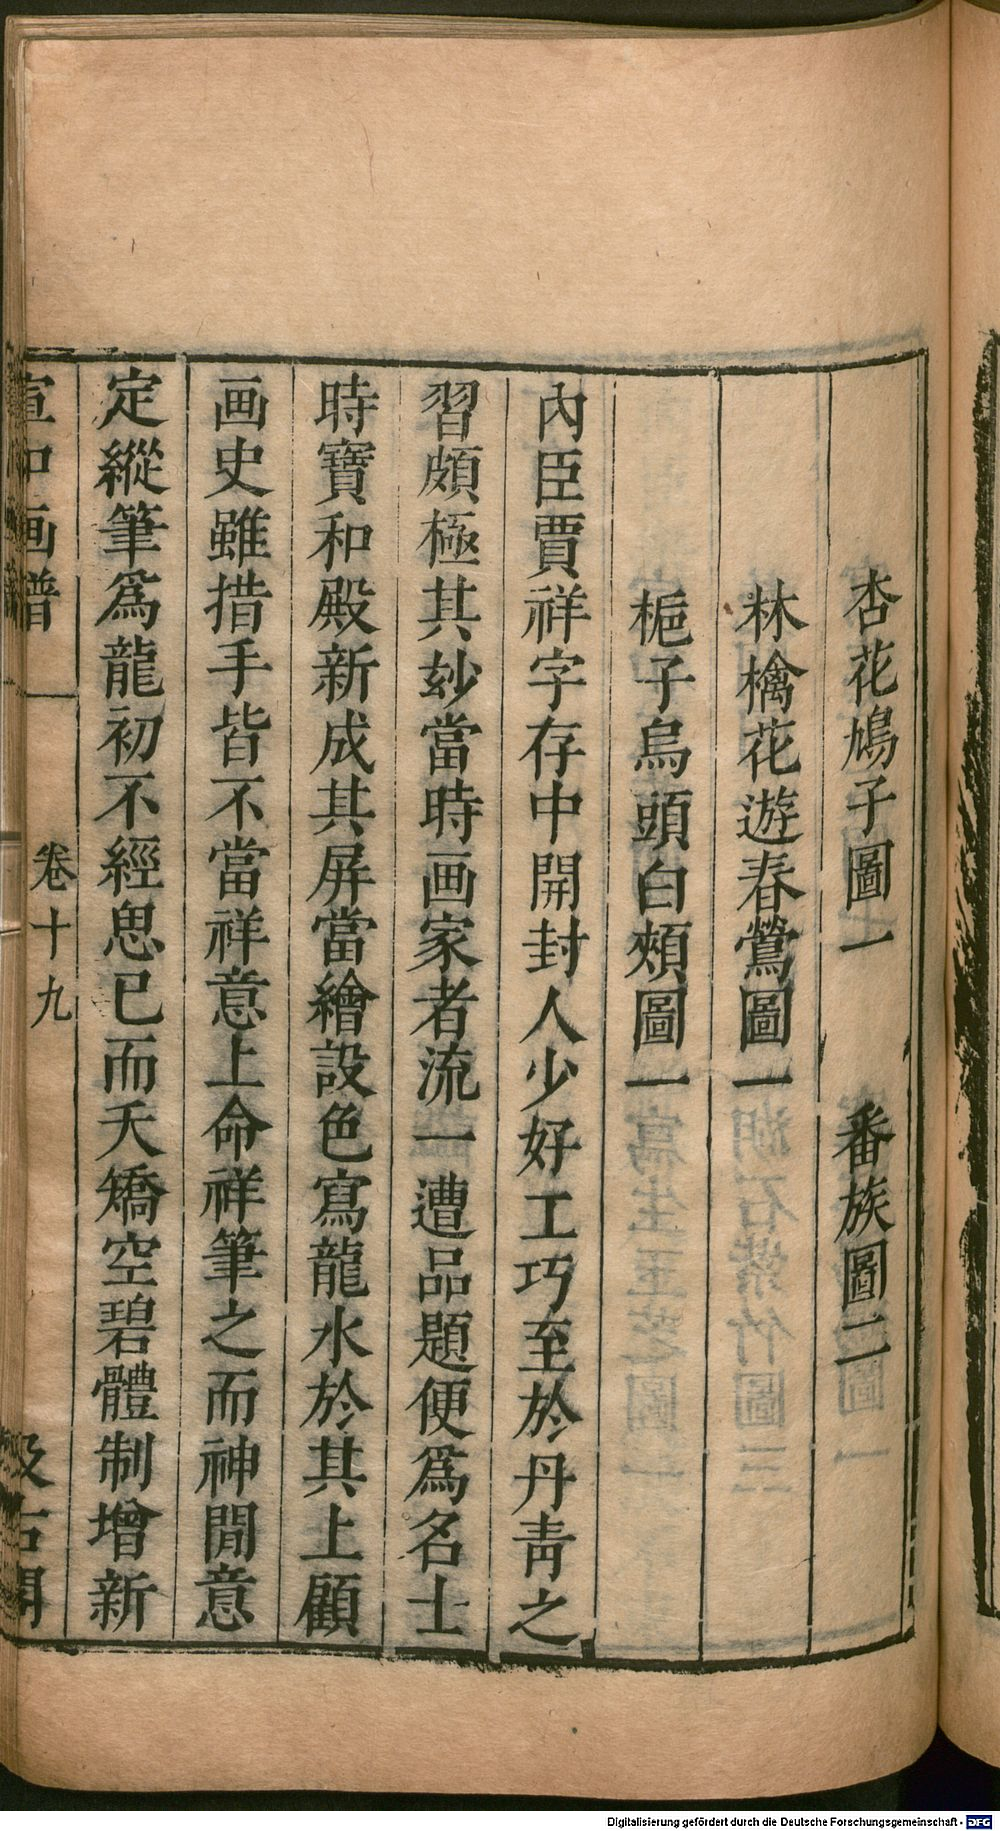 杏花鳩子圖一　番族圖二
林檎花遊春鶯圖一
梔子烏頭白頰圖一
內臣賈祥字存中開封人少好工巧至於丹靑之
習頗極其妙當時画家者流一遭品題便爲名士
時寶和殿新成其屏當繪設色寫龍水於其上顧
画史雖措手皆不當祥意上命祥筆之而神閒意
定縱筆爲龍初不經思已而夭矯空碧體制增新
宣和画譜　卷十九　汲古閣
Digitalisierung gefördert durch die Deutsche Forschungsgemeinschaft - DFG